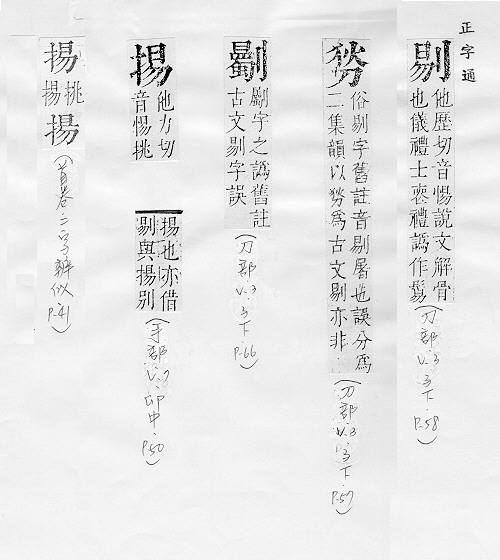 正字通
剔
他歷切音惕說文解骨
也儀禮士喪禮譌作鬄
(刀部 V.3 3下 P.58)
俗剔字舊註音剔屠也誤分為
二集韻以為古文剔亦非
(刀部 V.3 3下 P.57)
字之譌舊註
古文剔字誤
(刀部 V.3 3下 P.66)
掦
他力切
音惕挑
掦也亦借
剔與掦別
(手部 V.7 卯中 P.50)
掦
挑
掦
揚
(首卷 二字辨似 P.41)